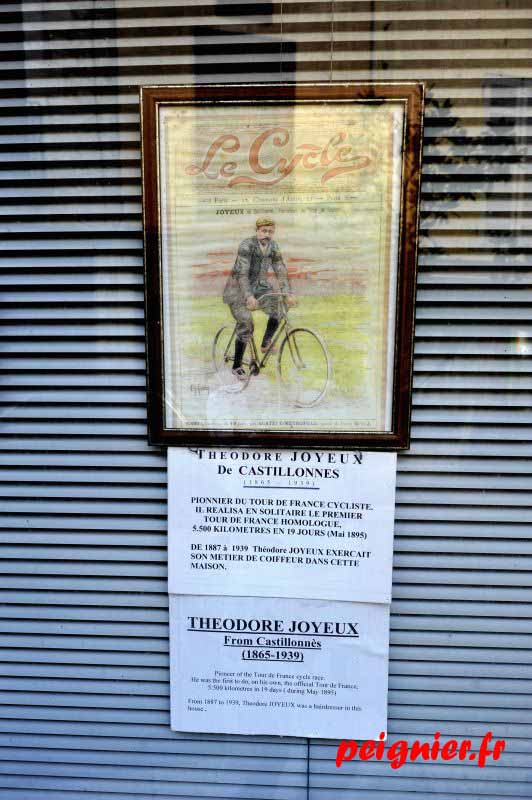 Le Cycle
JOYEUX
THEODORE JOYEUX
De CASTILLONNES
(1865 - 1939)
PIONNIER DU TOUR DE FRANCE CYCLISTE,
IL REALISA EN SOLITAIRE LE PREMIER
TOUR DE FRANCE HOMOLOGUE,
5.500 KILOMETRES EN 19 JOURS (Mai 1895)
DE 1887 à 1939 Théodore JOYEUX EXERCAIT
SON METIER DE COIFFEUR DANS CETTE
MAISON.
THEODORE JOYEUX
From Castillonnès
(1865-1939)
Pioneer of the Tour de France cycle race.
He was the first to do, on his own, the official Tour de France,
5.500 kilometres in 19 days ( during May 1895)
From 1887 to 1939, Theodore JOYEUX was a hairdresser in this
house .
peignier.fr